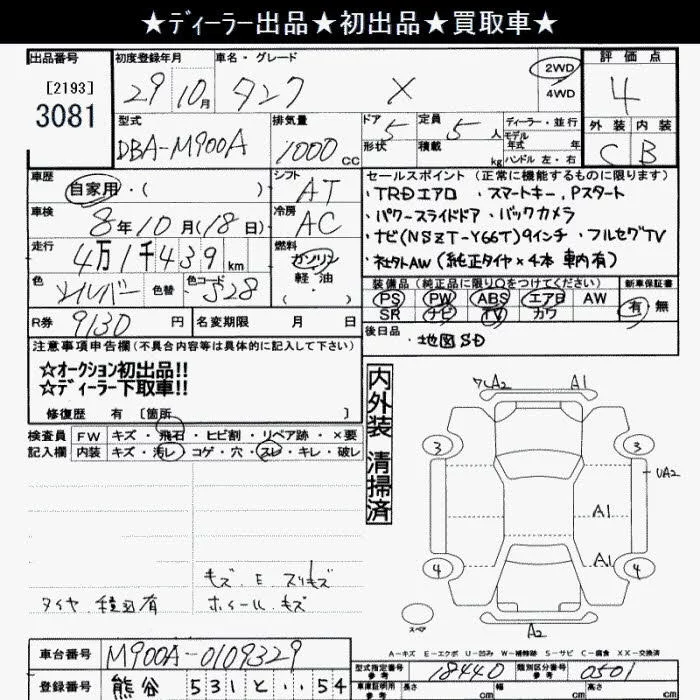 ★ディーラー出品★初出品★買取車★
出品番号 初度登録年月 車名・グレード 評価点
[2193] 29 10月 タンク X 2WD 4
3081 4WD
型式 排気量 ドア 定員 ディーラー・並行 外装 内装
DBA-M900A 1000CC 5 5人 モデル年式 年 C B
形状 積載 kg ハンドル 左・右
車歴 シフト セールスポイント (正常に機能するものに限ります)
自家用・( ) AT ・TRDエアロ ・スマートキー,Pスタート
車検 冷房 ・パワースライドドア ・バックカメラ
8年10月(18日) AC ・ナビ(NSZT-Y66T)9インチ ・フルセグTV
走行 燃料 ・社外AW (純正タイヤ×4本 車内有)
4万1千439km ガソリン
色 色替 色コード 軽・油 装備品(純正品に限り○をつけてください) 新車保証書
シルバー S28 ・( ) PS PW ABS エアB AW 有・無
SR ナビ TV カワ
R券 9130円 名変期限 月 日 後日品 ・地図SD
注意事項申告欄(不具合内容等は具体的に記入して下さい)
☆オークション初出品!!
☆ディーラー下取車!!
修復歴 有 [箇所 ]
内外装 清掃済
検査員 FW キズ・飛石・ヒビ割・リペア跡・×要
記入欄 内装 キズ・汚レ・コゲ・穴・スレ・キレ・破レ
A2 A1
3 3
UA2
A1
A1
4 4
スペア
A2
キズ、E、スリキズ
タイヤ 積込有 ホイール キズ
A-キズ E-エクボ U-凹み W-補修跡 S-サビ C-腐食 XX-交換済
車台番号 M900A-0109329 型式指定番号 参考 18440 類別区分番号 参考 0501
登録番号 熊谷 531 と ・・54 車庫証明用 参考 長さ cm 幅 cm 高さ cm